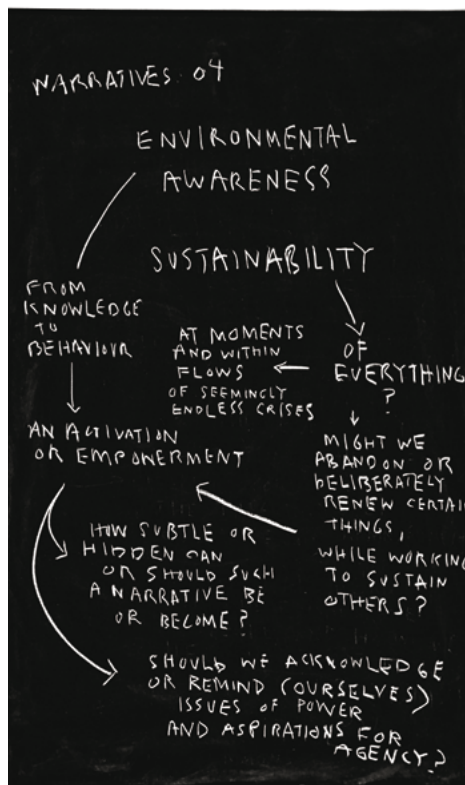 NARRATIVES 04
ENVIRONMENTAL
AWARENESS
SUSTAINABILITY
FROM
KNOWLEDGE
TO
BEHAVIOUR
AT MOMENTS
AND WITHIN
FLOWS
OF SEEMINGLY
ENDLESS CRISES
OF
EVERYTHING
?
AN ACTIVATION
OR EMPOWERMENT
MIGHT WE
ABANDON OR
DELIBERATELY
RENEW CERTAI
THINGS,
WHILE WORKING
TO SUSTAIN
OTHERS?
HOW SUBTLE OR
HIDDEN CAN
OR SHOULD SUCH
A NARRATIVE BE
OR BECOME?
SHOULD WE ACKNOWLEDGE
OR REMIND (OURSELVES)
ISSUES OF POWER
AND ASPIRATIONS FOR
AGENCY?